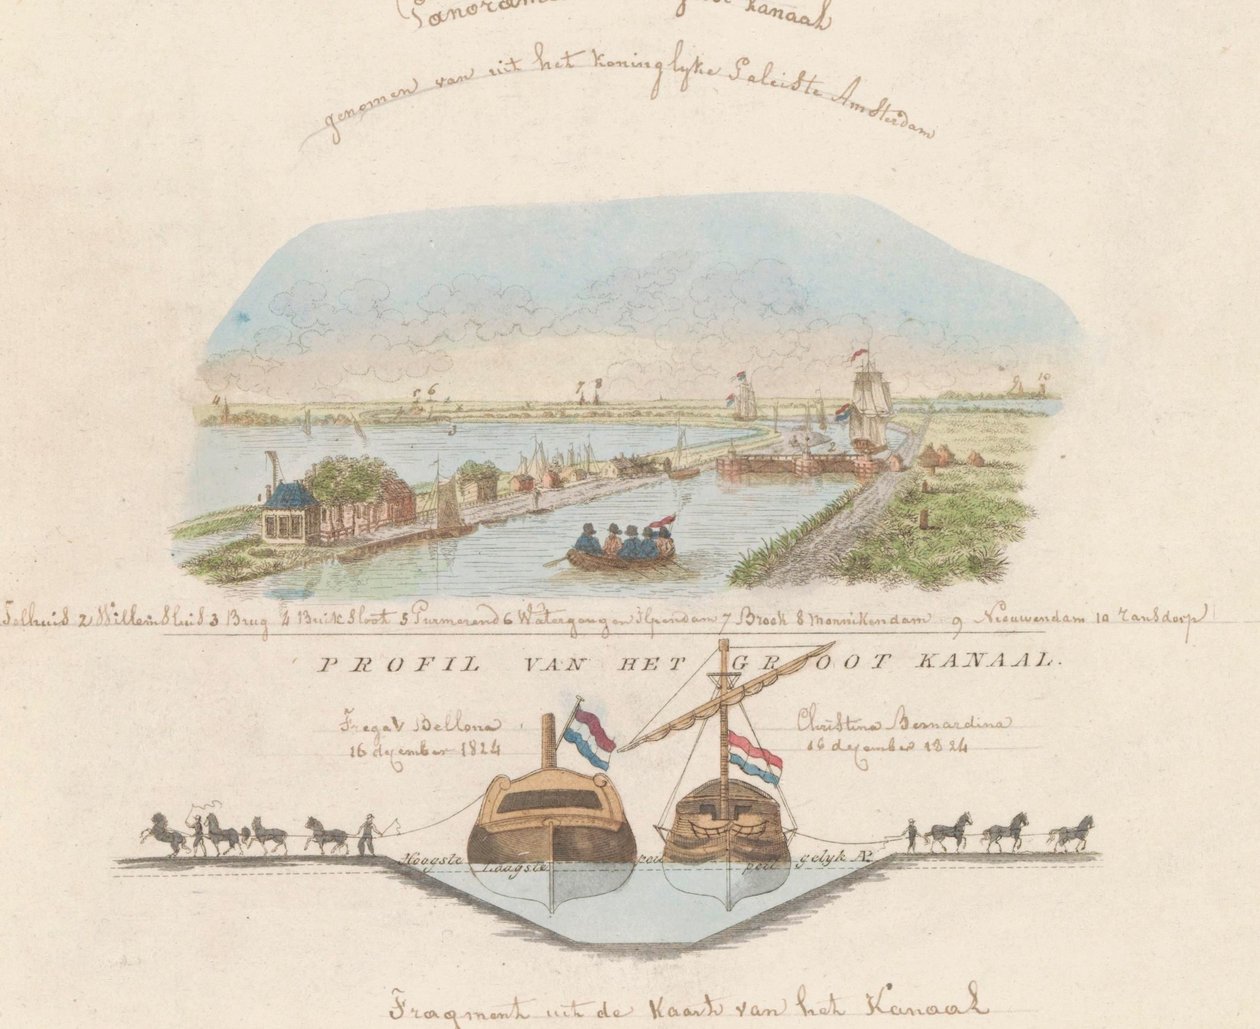 Panorama kanaal
genomen van uit het koninglyke Paleis te Amsterdam
4 6 7 8 10
2
1
Tolhuis 2 Willem Sluis 3 Brug 4 Buik Sloot 5 Purmerend 6 Watergang en Ilpendam 7 Broek 8 Monnikendam 9 Nieuwendam 10 ransdorp
PROFIL VAN HET GROOT KANAAL.
Fregat Bellona
16 december 1824
Christina Bernardina
16 december 1824
Hoogste peil gelyk AP
Laagste peil
Fragment uit de Kaart van het Kanaal